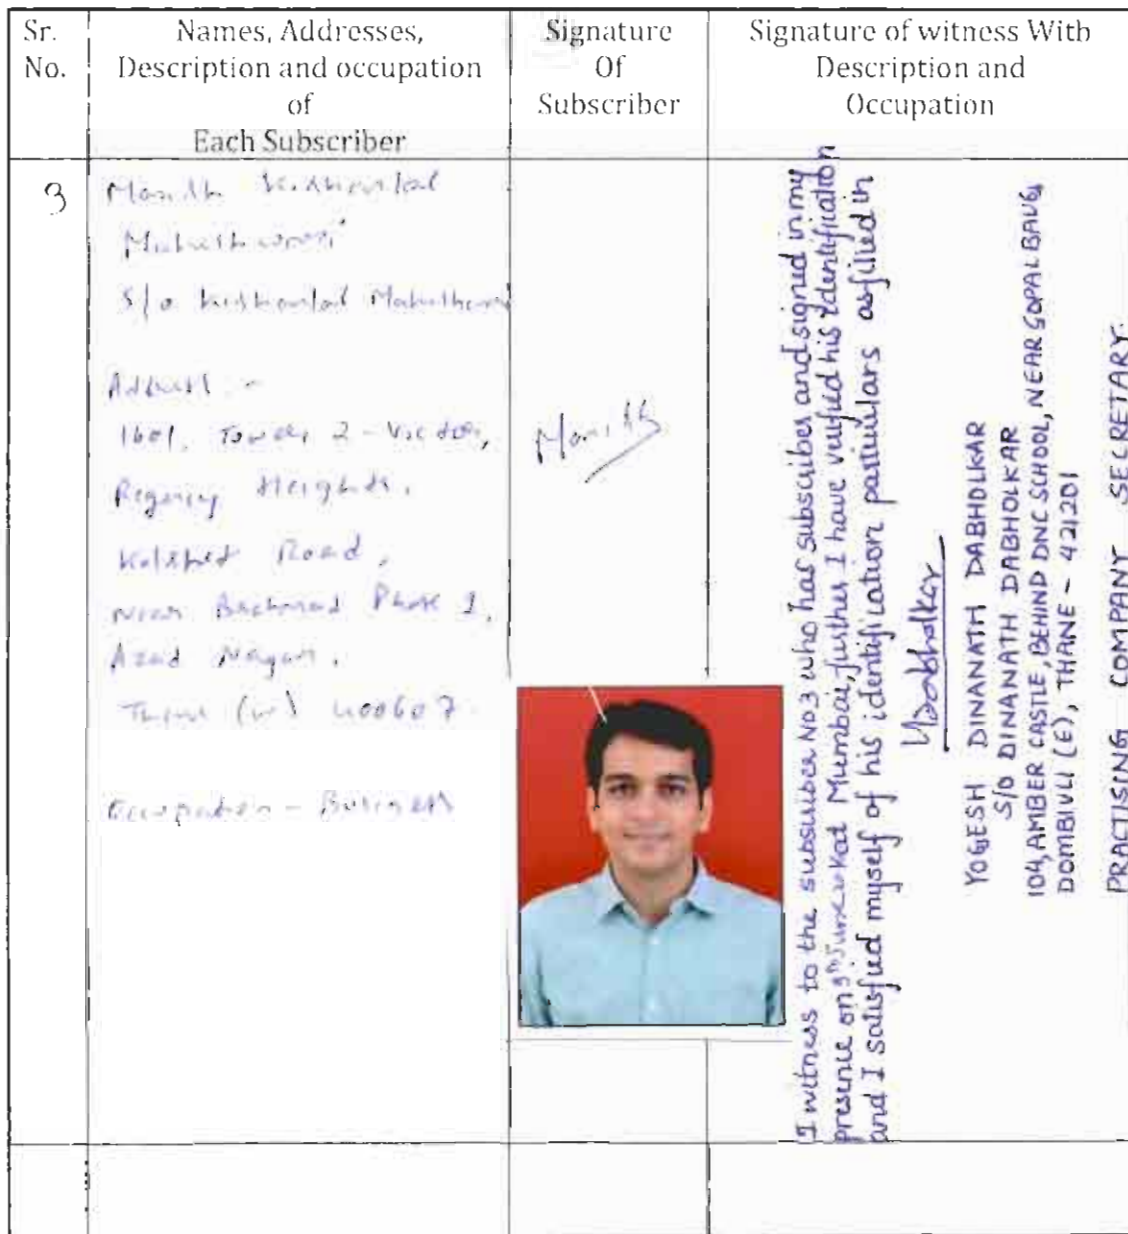 Sr.
No.
Names, Addresses,
Description and occupation
of
Each Subscriber
Signature
Of
Subscriber
Signature of witness With
Description and
Occupation
3
Manish Kishanlal
Maheshwari
S/o Kishanlal Maheshwari
Address -
1601, Tower 2 - Victor,
Regency Heights,
Kolshet Road,
Near Brahmand Phase 1,
Azad Nagar,
Thane (w) 400607
Occupation - Business
Manish
I witness to the subscriber No3 who has subscribes and signed in my
presence on at Mumbai, further I have verified his Identification
and I satisfied myself of his identification particulars as filled in
YDabholkar
YOGESH DINANATH DABHOLKAR
S/O DINANATH DABHOLKAR
104, AMBER CASTLE, BEHIND DNC SCHOOL, NEAR GOPAL BAUG,
DOMBIVLI (E), THANE - 421201
PRACTISING COMPANY SECRETARY.